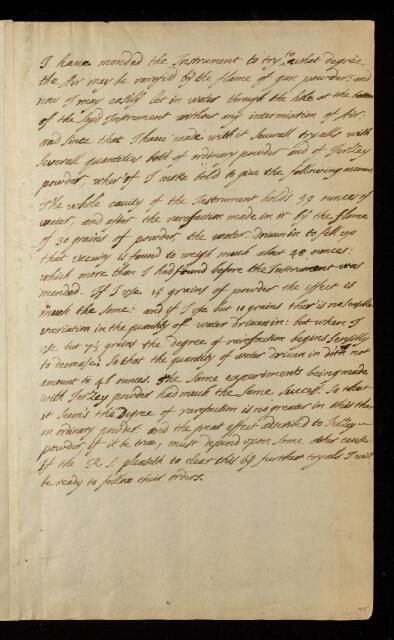 I have mended the Instrument to try to what degree
the Air may be rarefid by the flame of gun powder: and
now I may easily let in water through the hole at the bottom
of the sayd Instrument without any intermission of Air.
and since that I have made with it severall tryalls with
severall quantities both of ordinary powder and of
powder, wher of I make bold to give the following account
The whole cavity of the Instrument holds 59 ounces of
water, and after the rarefaction made in it by the flame
of 20 grains of powder, the water driven in to fill up
that vacuity is found to weigh much about 48 ounces:
which more than I had found before the Instrument was
mended. If I use 15 grains of powder the effect is
much the same: and if I use but 10 grains ther is no sensible
variation in the quantity of water driven in: but when I
use but 7½ grains the degree of rarefaction begins sensibly
to decrease: so that the quantity of water driven in doth not
amount to 48 ounces. The same experiments being made
with powder had much the same success. So that
it seems the Degree of rarefaction is no greater in this than
in ordinary powder. and the great effect ascribed to
powder, if it be true, must depend upon some other cause.
If the R. S. pleaseth to clear this by further tryals I will
be ready to follow their orders.